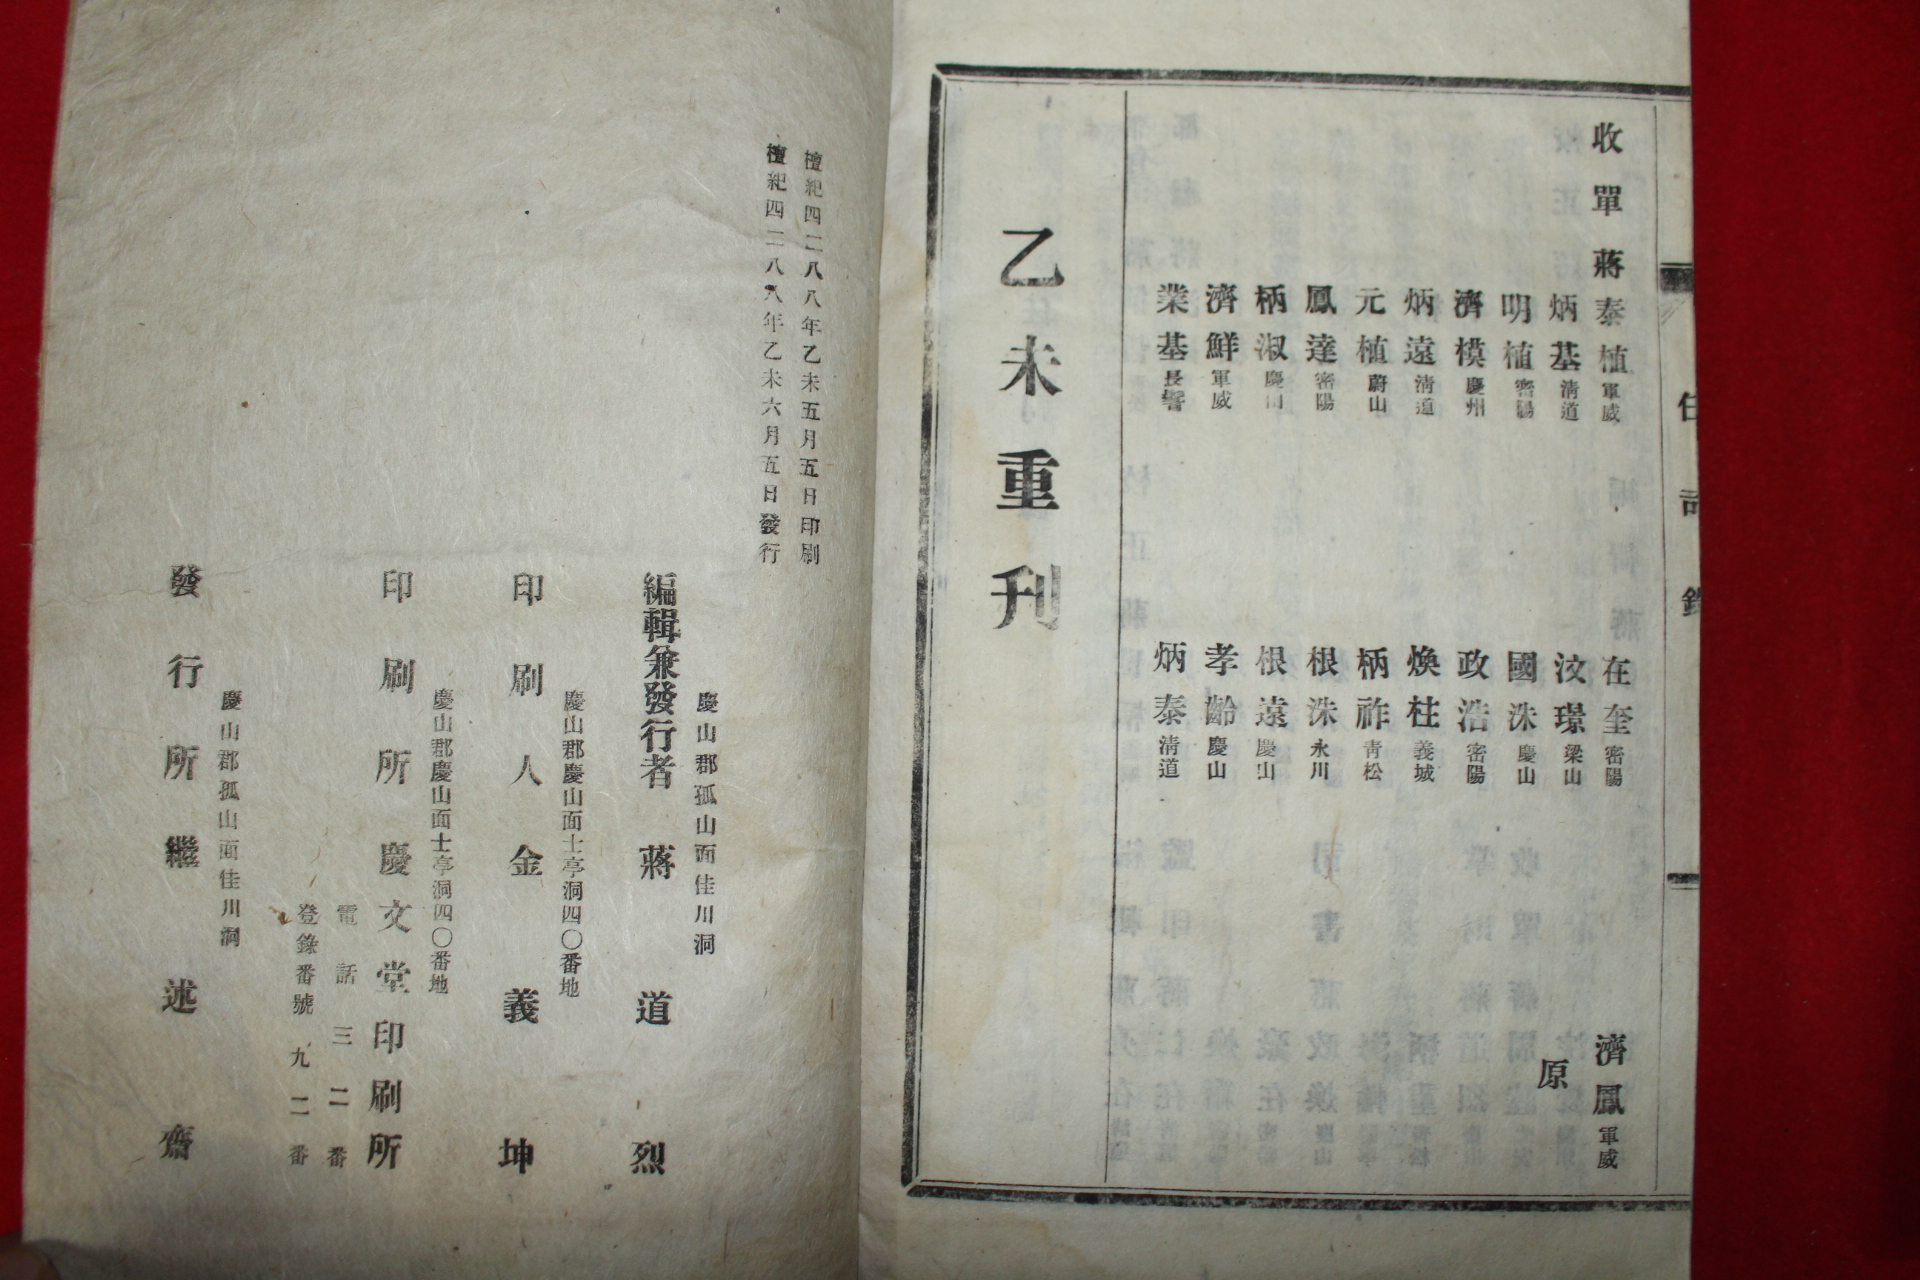 收單 蔣泰植 軍威 在奎 密陽 濟鳳 軍威
炳基 清道 汶璟 梁山 原
明植 密陽 國洙 慶山
濟模 慶州 政浩 密陽
炳遠 清道 煥柱 義城
元植 蔚山 柄祚 青松
鳳達 密陽 根洙 永川
柄淑 慶山 根遠 慶山
濟鮮 軍威 孝齡 慶山
業基 長鬐 炳泰 清道
乙未重刊
檀紀四二八八年乙未五月五日印刷
檀紀四二八八年乙未六月五日發行
慶山郡孤山面佳川洞
編輯兼發行者 蔣道烈
慶山郡慶山面士亭洞四〇番地
印刷人 金義坤
慶山郡慶山面士亭洞四〇番地
印刷所 慶文堂印刷所
電話 三二番
登錄番號 九二番
慶山郡孤山面佳川洞
發行所 繼述齋